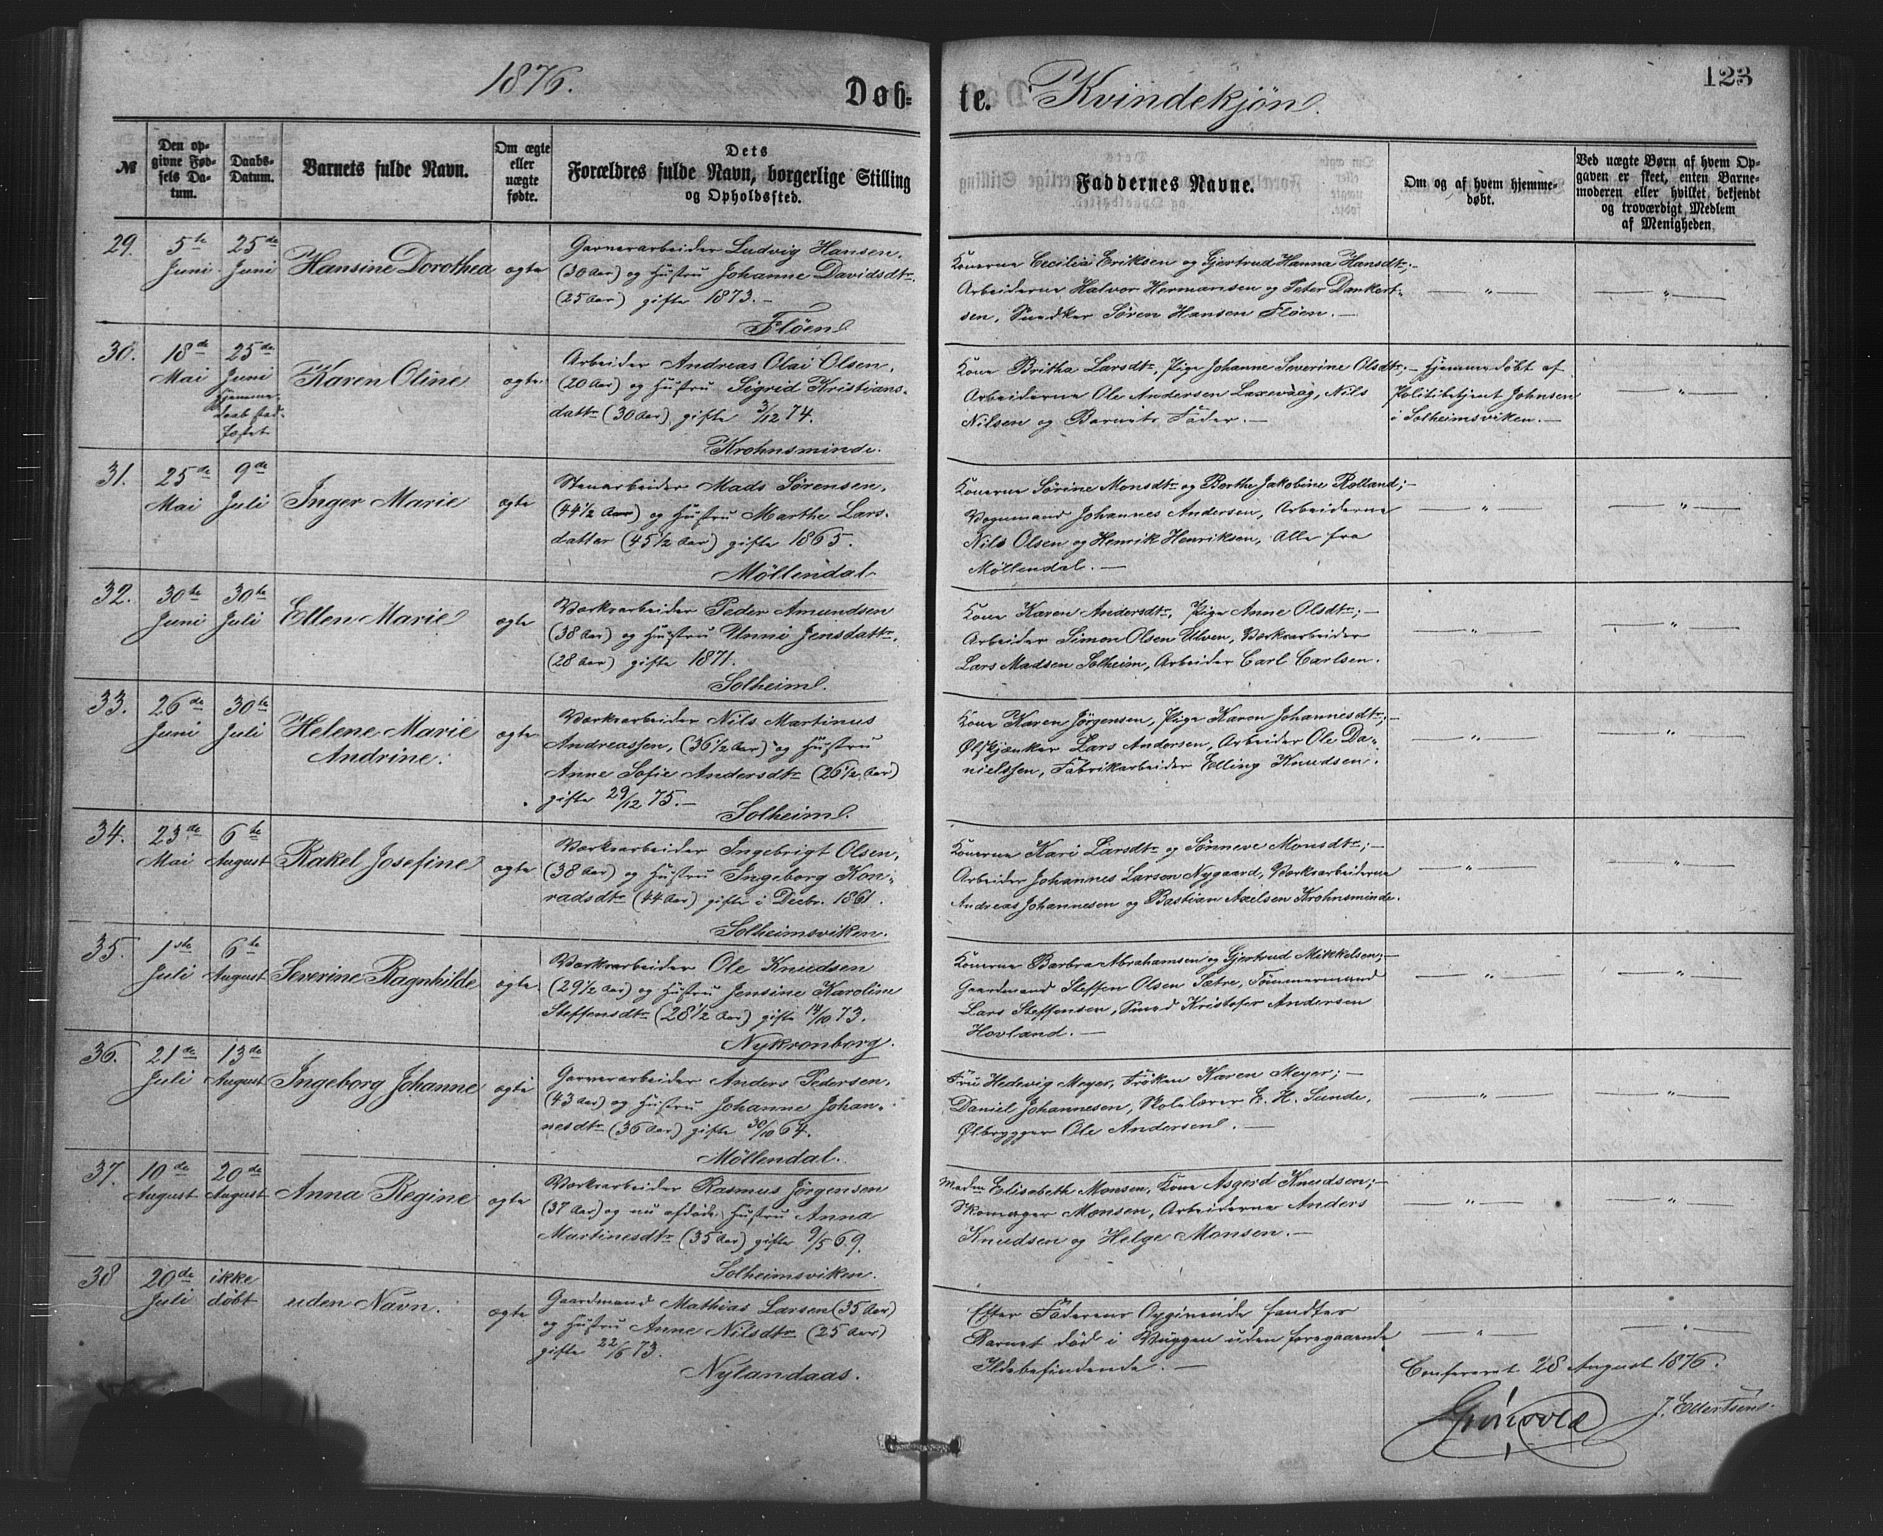 1876.
Døb=
te.
Kvindekjøn.
123
№
Den op=
givne Fød=
sels Da=
tum.
Daabs=
Datum.
Barnets fulde Navn.
Om ægte
eller
uægte
fødte.
Dets
Forældres fulde Navn, borgerlige Stilling
og Opholdssted.
Faddernes Navne.
Om og af hvem hjemme=
døbt.
Ved uægte Børn af hvem Op=
gaven er skeet, enten Barne=
moderen eller hvilket, bekjendt
og troværdigt Medlem
af Menigheden.
29. 5te Juni 25de Juni Hansine Dorothea ægte
Garverarbeider Ludvig Hansen,
(30 Aar) og Hustru Johanne Davidsdtr.
(25 Aar) gifte 1873. –
Fløen.
Konerne Cecilia Eriksen og Gjertrud Hanna Hansdtr; –
Arbeiderne Halvor Hermansen og Peter Dankert-
sen, Snedker Sören Hansen Fløen. –
— " —
— " —
30. 18de Mai 25de Juni
Hjemme-
daab stad-
fæstet
Karen Oline ægte
Arbeider Andreas Olai Olsen,
(20 Aar) og Hustru Sigrid Kristians-
datter (30 Aar) gifte 3/12 74.
Krohnsminde.
Kone Britha Larsdtr, Pige Johanne Severine Olsdtr; –
Arbeiderne Ole Andersen Laxevaag, Nils
Nilsen og Barnets Fader. –
Hjemmedøbt af
Politibetjent Johnsen
i Solheimsviken. –
— " —
31. 25de Mai 9de Juli Inger Marie ægte
Stenarbeider Mads Sørensen,
(44 1/2 Aar) og Hustru Marthe Lars-
datter (45 1/2 Aar) gifte 1865.
Möllendal
Konerne Sörine Monsdtr og Berthe Jakobine Rolland; –
Vognmand Johannes Andersen, Arbeiderne
Nils Olsen og Henrik Henriksen, Alle fra
Möllendal. –
— " —
— " —
32. 30te Juni 30te Juli Ellen Marie ægte
Værksarbeider Peder Amundsen
(38 Aar) og Hustru Unni Jensdattr.
(28 Aar) gifte 1871.
Solheim.
Kone Karen Andersdtr, Pige Anne Olsdtr; –
Arbeider Simon Olsen Ulven, Værksarbeider
Lars Madsen Solheim, Arbeider Carl Carlsen.
— " —
— " —
33. 26de Juni 30te Juli Helene Marie
Andrine. ægte
Værksarbeider Nils Martinus
Andreassen, (36 1/2 Aar) og Hustru
Anne Sofie Andersdtr (26 1/2 Aar)
gifte 29/12 75. –
Solheim.
Kone Karen Jørgensen, Pige Karen Johannesdtr; –
Ølskjænker Lars Andersen, Arbeider Ole Da-
nielssen, Fabrikarbeider Elling Knudsen.
— " —
— " —
34. 23de Mai 6te August Rakel Josefine ægte
Værksarbeider Ingebrigt Olsen,
(38 Aar) og Hustru Ingeborg Kon-
radsdtr (44 Aar) gifte i Decbr. 1861.
Solheimsviken.
Konerne Kari Larsdtr og Sönneve Monsdtr; –
Arbeider Johannes Larsen Nygaard, Værksarbeiderne
Andreas Johannesen og Bastian Axelsen Krohnsminde.
— " —
— " —
35. 1ste Juli 6te August Severine Ragnhilde ægte
Værksarbeider Ole Knudsen
(29 1/2 Aar) og Hustru Jensine Karoline
Steffensdtr (28 1/2 Aar) gifte 14/10 73.
Nykronborg.
Konerne Barbra Abrahamsen og Gjertrud Mikkelsen; –
Gaardmand Steffen Olsen Sætre, Tömmermand
Lars Steffensen, Smed Kristofer Andersen
Hovland. –
— " —
— " —
36. 21de Juli 13de August Ingeborg Johanne ægte
Garverarbeider Anders Pedersen,
(43 Aar) og Hustru Johanne Johan-
nesdtr (36 Aar) gifte 30/10 64.
Möllendal.
Fru Hedevig Meyer, Frøken Karen Meyer; –
Daniel Johannesen, Skolelærer E. H. Sunde,
Ølbrygger Ole Andersen. –
— " —
— " —
37. 10de August 20de August Anna Regine ægte
Værksarbeider Rasmus Jørgensen
(37 Aar) og nu afdøde Hustru Anna
Martinesdtr (35 Aar) gifte 9/5 69.
Solheimsviken.
Madm Elisabeth Monsen, Kone Asgerd Knudsen; –
Skomager Monsen, Arbeiderne Anders
Knudsen og Helge Monsen. –
— " —
— " —
38 20de Juli ikke døbt uden Navn. ægte
Gaardmand Mathias Larsen (35 Aar)
og Hustru Anne Nilsdtr (25 Aar)
gifte 22/6 73.
Nylandaas.
Efter Faderens Opgivende fandtes
Barnet død i Vuggen uden foregaaende
Ildebefindende. –
— " —
— " —
Confereret 28 August 1876.
Grönvold